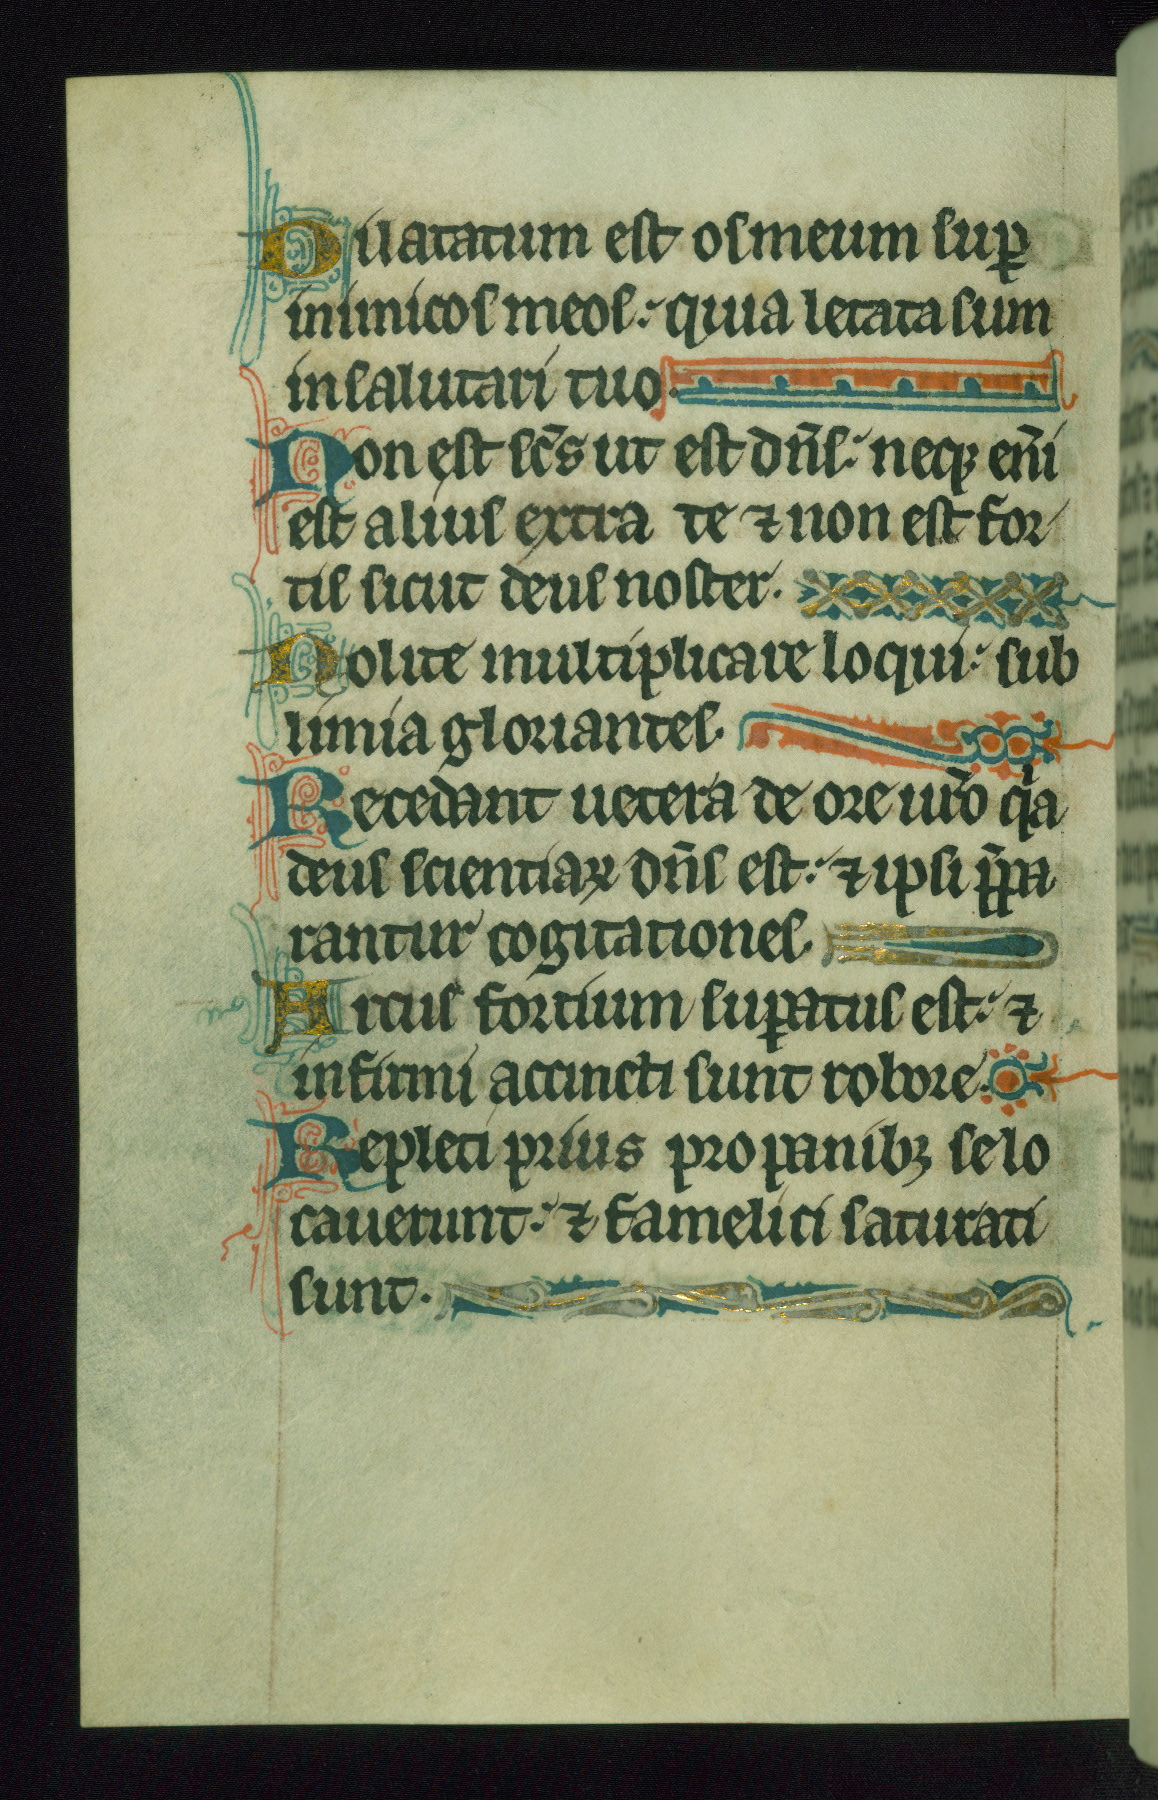 Dilatatum est os meum sup̲
inimicos meos: quia letata sum
in salutari tuo.
Non est sc̄s ut est dn̄s: neq; eni̅
est alius extra te ⁊ non est for
tis sicut deus noster.
Nolite multiplicare loqui: sub
limia gloriantes.
Recedant uetera de ore ur̄o q̇a
deus scientiaꝝ dn̄s est: ⁊ ipsi p̄pa
rantur cogitationes.
Arcus fortium suꝑatus est: ⁊
infirmi accincti sunt robore.
Repleti prius pro panibꝫ se lo
cauerunt: ⁊ famelici saturati
sunt.